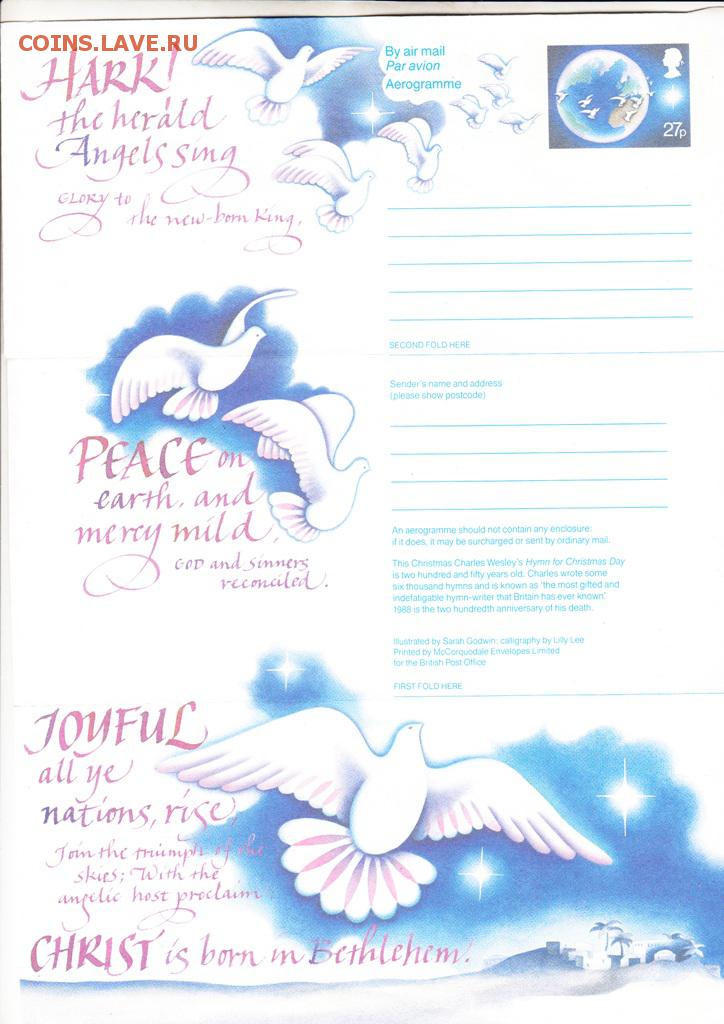 COINS.LAVE.RU
HARK!
the herald
Angels sing
GLORY to
the new-born King,
By air mail
Par avion
Aerogramme
27p
SECOND FOLD HERE
PEACE on
earth, and
mercy mild,
GOD and sinners
reconciled.
Sender's name and address
(please show postcode)
An aerogramme should not contain any enclosure:
if it does, it may be surcharged or sent by ordinary mail.
This Christmas Charles Wesley's Hymn for Christmas Day
is two hundred and fifty years old. Charles wrote some
six thousand hymns and is known as 'the most gifted and
indefatigable hymn-writer that Britain has ever known'
1988 is the two hundredth anniversary of his death.
Illustrated by Sarah Godwin; calligraphy by Lilly Lee
Printed by McCorquodale Envelopes Limited
for the British Post Office
FIRST FOLD HERE
JOYFUL
all ye
nations, rise,
Join the triumph of the
skies; With the
angelic host proclaim
CHRIST is born in Bethlehem!